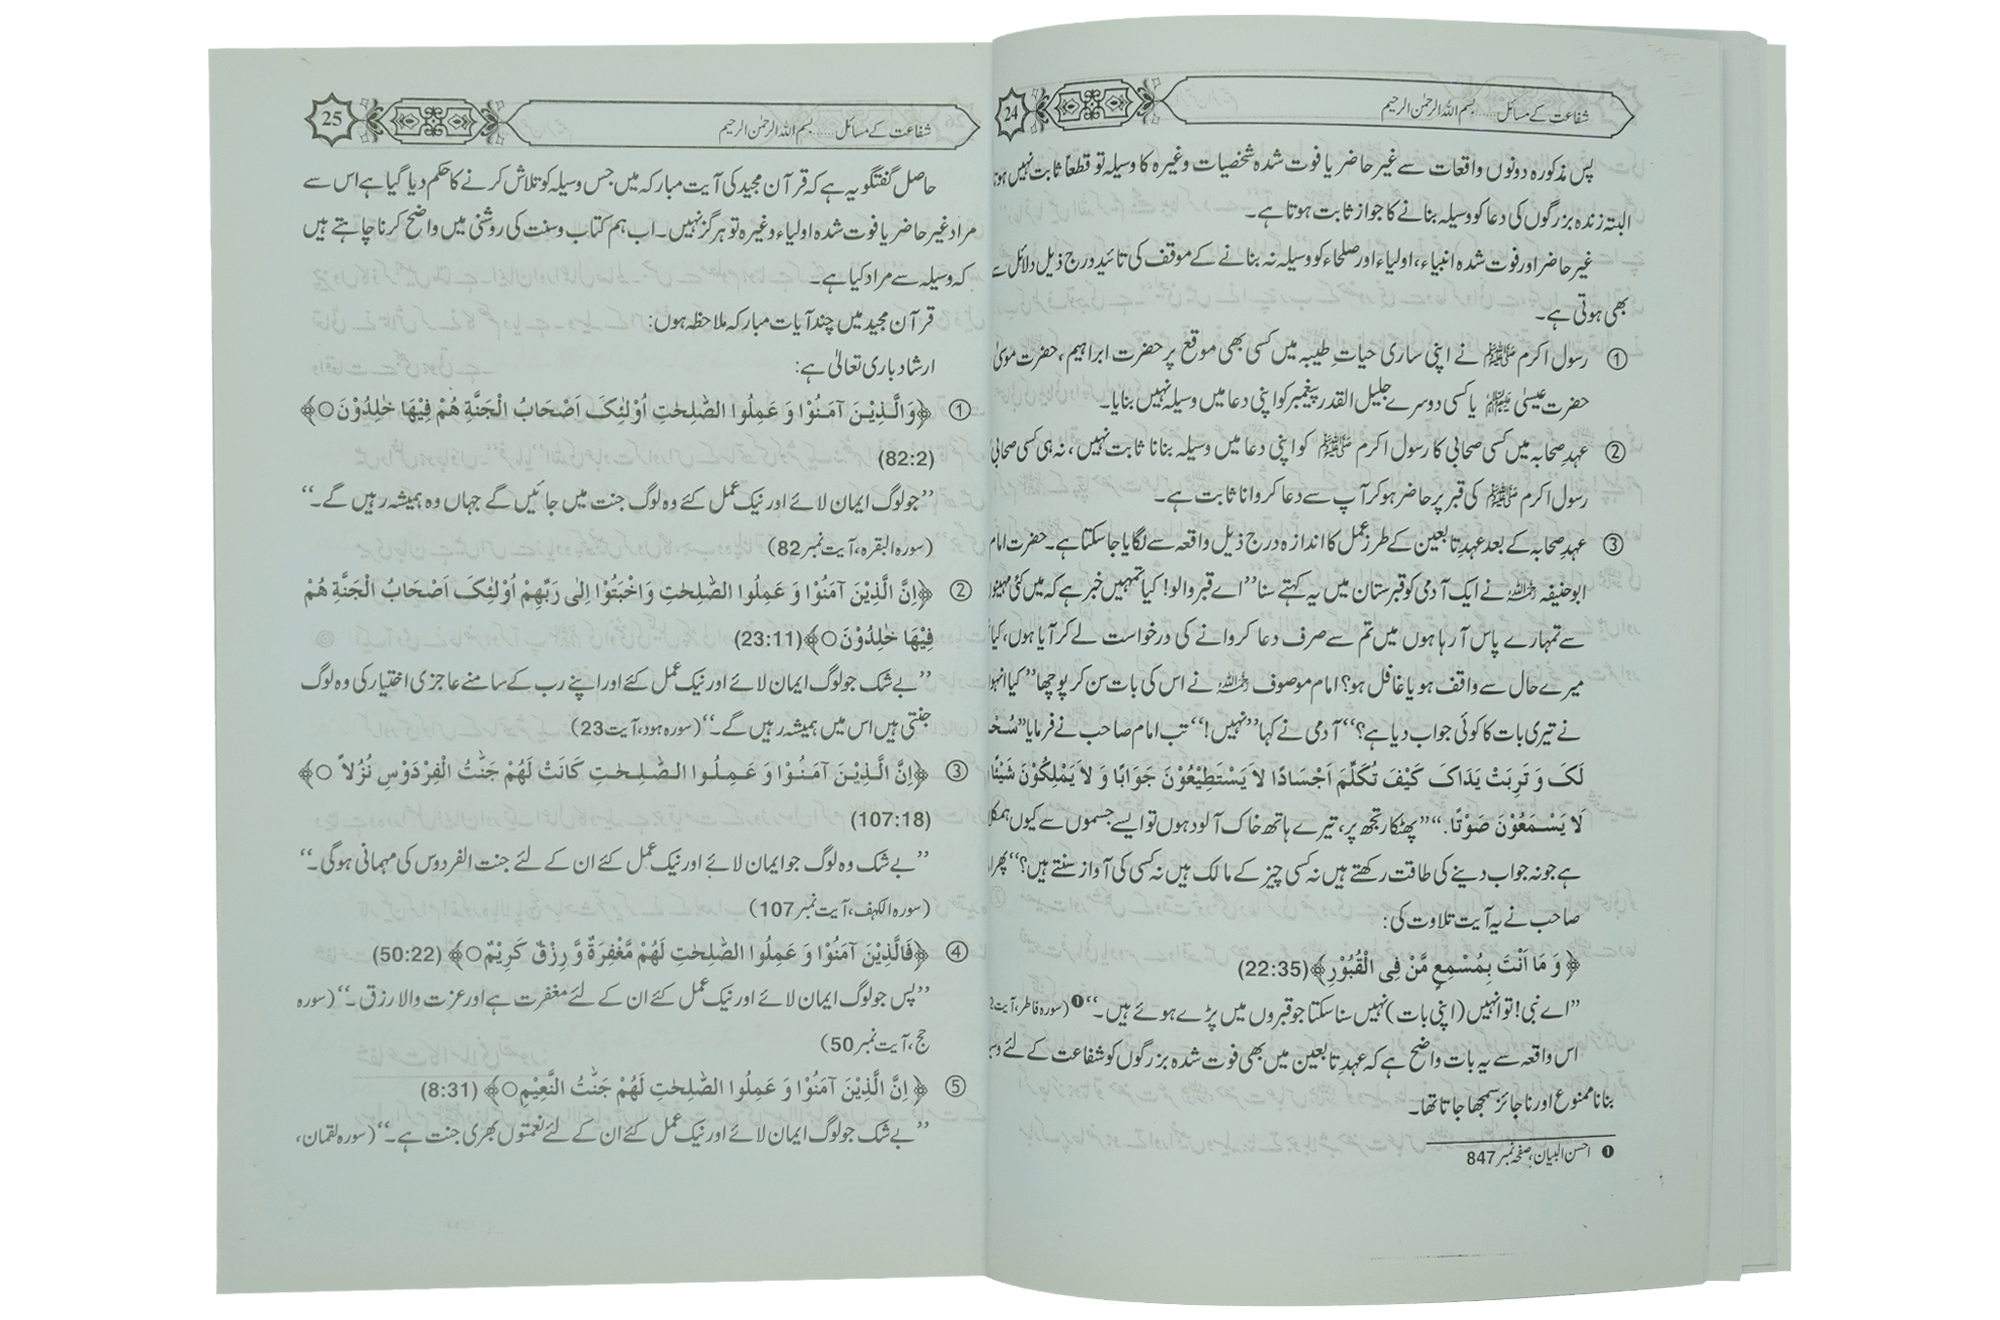 24
شفاعت کے مسائل......بسم اللہ الرحمٰن الرحیم
پس مذکورہ دونوں واقعات سے غیر حاضر یا فوت شدہ شخصیات وغیرہ کا وسیلہ تو قطعاً ثابت نہیں ہوتا
البتہ زندہ بزرگوں کی دعا کو وسیلہ بنانے کا جواز ثابت ہوتا ہے۔
غیر حاضر اور فوت شدہ انبیاء، اولیاء اور صلحاء کو وسیلہ نہ بنانے کے موقف کی تائید درج ذیل دلائل سے
بھی ہوتی ہے۔
① رسول اکرم ﷺ نے اپنی ساری حیاتِ طیبہ میں کسی بھی موقع پر حضرت ابراہیم، حضرت موسیٰ
حضرت عیسیٰ علیہم السلام یا کسی دوسرے جلیل القدر پیغمبر کو اپنی دعا میں وسیلہ نہیں بنایا۔
② عہد صحابہ میں کسی صحابی کا رسول اکرم ﷺ کو اپنی دعا میں وسیلہ بنانا ثابت نہیں، نہ ہی کسی صحابی
رسول اکرم ﷺ کی قبر پر حاضر ہو کر آپ سے دعا کروانا ثابت ہے۔
③ عہد صحابہ کے بعد عہد تابعین کے طرز عمل کا اندازہ درج ذیل واقعہ سے لگایا جا سکتا ہے۔ حضرت امام
ابو حنیفہ رحمہ اللہ نے ایک آدمی کو قبرستان میں یہ کہتے سنا ’’اے قبر والو! کیا تمہیں خبر ہے کہ میں کئی مہینوں
سے تمہارے پاس آ رہا ہوں میں تم سے صرف دعا کروانے کی درخواست لے کر آیا ہوں، کیا
میرے حال سے واقف ہو یا غافل ہو؟ امام موصوف رحمہ اللہ نے اس کی بات سن کر پوچھا ’’کیا انہوں
نے تیری بات کا کوئی جواب دیا ہے؟‘‘ آدمی نے کہا ’’نہیں!‘‘ تب امام صاحب نے فرمایا ’’سُحْ
لَکَ وَ تَرِبَتْ یَدَاکَ کَیْفَ تُکَلِّمُ اَجْسَادًا لاَ یَسْتَطِیْعُوْنَ جَوَابًا وَ لاَ یَمْلِکُوْنَ شَیْئًا
لَا یَسْمَعُوْنَ صَوْتًا.‘‘ ’’پھٹکار تجھ پر، تیرے ہاتھ خاک آلود ہوں تو ایسے جسموں سے کیوں ہمکلا
ہے جو نہ جواب دینے کی طاقت رکھتے ہیں نہ کسی چیز کے مالک ہیں نہ کسی کی آواز سنتے ہیں؟‘‘ پھر ا
صاحب نے یہ آیت تلاوت کی:
﴿ وَ مَا اَنْتَ بِمُسْمِعٍ مَّنْ فِی الْقُبُوْرِ﴾(22:35)
’’اے نبی! تو انہیں (اپنی بات) نہیں سنا سکتا جو قبروں میں پڑے ہوئے ہیں۔‘‘❶ (سورہ فاطر، آیت 2
اس واقعہ سے یہ بات واضح ہے کہ عہد تابعین میں بھی فوت شدہ بزرگوں کو شفاعت کے لئے وسی
بنانا ممنوع اور ناجائز سمجھا جاتا تھا۔
❶ احسن البیان، صفحہ نمبر 847
25
شفاعت کے مسائل......بسم اللہ الرحمٰن الرحیم
حاصل گفتگو یہ ہے کہ قرآن مجید کی آیت مبارکہ میں جس وسیلہ کو تلاش کرنے کا حکم دیا گیا ہے اس سے
مراد غیر حاضر یا فوت شدہ اولیاء وغیرہ تو ہرگز نہیں۔ اب ہم کتاب وسنت کی روشنی میں واضح کرنا چاہتے ہیں
کہ وسیلہ سے مراد کیا ہے۔
قرآن مجید میں چند آیات مبارکہ ملاحظہ ہوں:
ارشاد باری تعالیٰ ہے:
① ﴿وَالَّذِیْنَ آمَنُوْا وَ عَمِلُوا الصّٰلِحٰتِ اُوْلٰئِکَ اَصْحَابُ الْجَنَّةِ هُمْ فِیْهَا خٰلِدُوْنَ○﴾
(82:2)
’’جو لوگ ایمان لائے اور نیک عمل کئے وہ لوگ جنت میں جائیں گے جہاں وہ ہمیشہ رہیں گے۔‘‘
(سورہ البقرہ، آیت نمبر 82)
② ﴿اِنَّ الَّذِیْنَ آمَنُوْا وَ عَمِلُوا الصّٰلِحٰتِ وَاَخْبَتُوْا اِلٰی رَبِّهِمْ اُوْلٰئِکَ اَصْحَابُ الْجَنَّةِ هُمْ
فِیْهَا خٰلِدُوْنَ○﴾(23:11)
’’بے شک جو لوگ ایمان لائے اور نیک عمل کئے اور اپنے رب کے سامنے عاجزی اختیار کی وہ لوگ
جنتی ہیں اس میں ہمیشہ رہیں گے۔‘‘ (سورہ ہود، آیت 23)
③ ﴿اِنَّ الَّذِیْنَ آمَنُوْا وَ عَمِلُوا الصّٰلِحٰتِ کَانَتْ لَهُمْ جَنّٰتُ الْفِرْدَوْسِ نُزُلاً ○﴾
(107:18)
’’بے شک وہ لوگ جو ایمان لائے اور نیک عمل کئے ان کے لئے جنت الفردوس کی مہمانی ہوگی۔‘‘
(سورہ الکہف، آیت نمبر 107)
④ ﴿فَالَّذِیْنَ آمَنُوْا وَ عَمِلُوا الصّٰلِحٰتِ لَهُمْ مَّغْفِرَةٌ وَّ رِزْقٌ کَرِیْمٌ○﴾ (50:22)
’’پس جو لوگ ایمان لائے اور نیک عمل کئے ان کے لئے مغفرت ہے اور عزت والا رزق۔‘‘ (سورہ
حج، آیت نمبر 50)
⑤ ﴿ اِنَّ الَّذِیْنَ آمَنُوْا وَ عَمِلُوا الصّٰلِحٰتِ لَهُمْ جَنّٰتُ النَّعِیْمِ○﴾ (8:31)
’’بے شک جو لوگ ایمان لائے اور نیک عمل کئے ان کے لئے نعمتوں بھری جنت ہے۔‘‘ (سورہ لقمان،